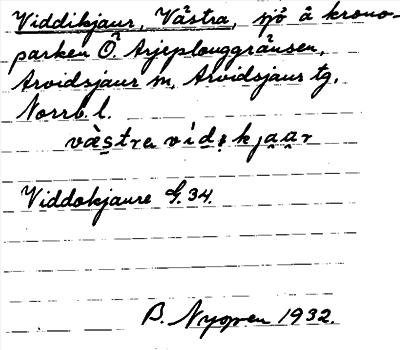 Viddikjaur, Västra, sjö å krono-
parken Ö. Arjeplouggränsen,
Arvidsjaur sn, Arvidsjaurs tg,
Norrb. l.
västra vidǝkjaar
Viddokjaure G. 34.
B. Nygren 1932.